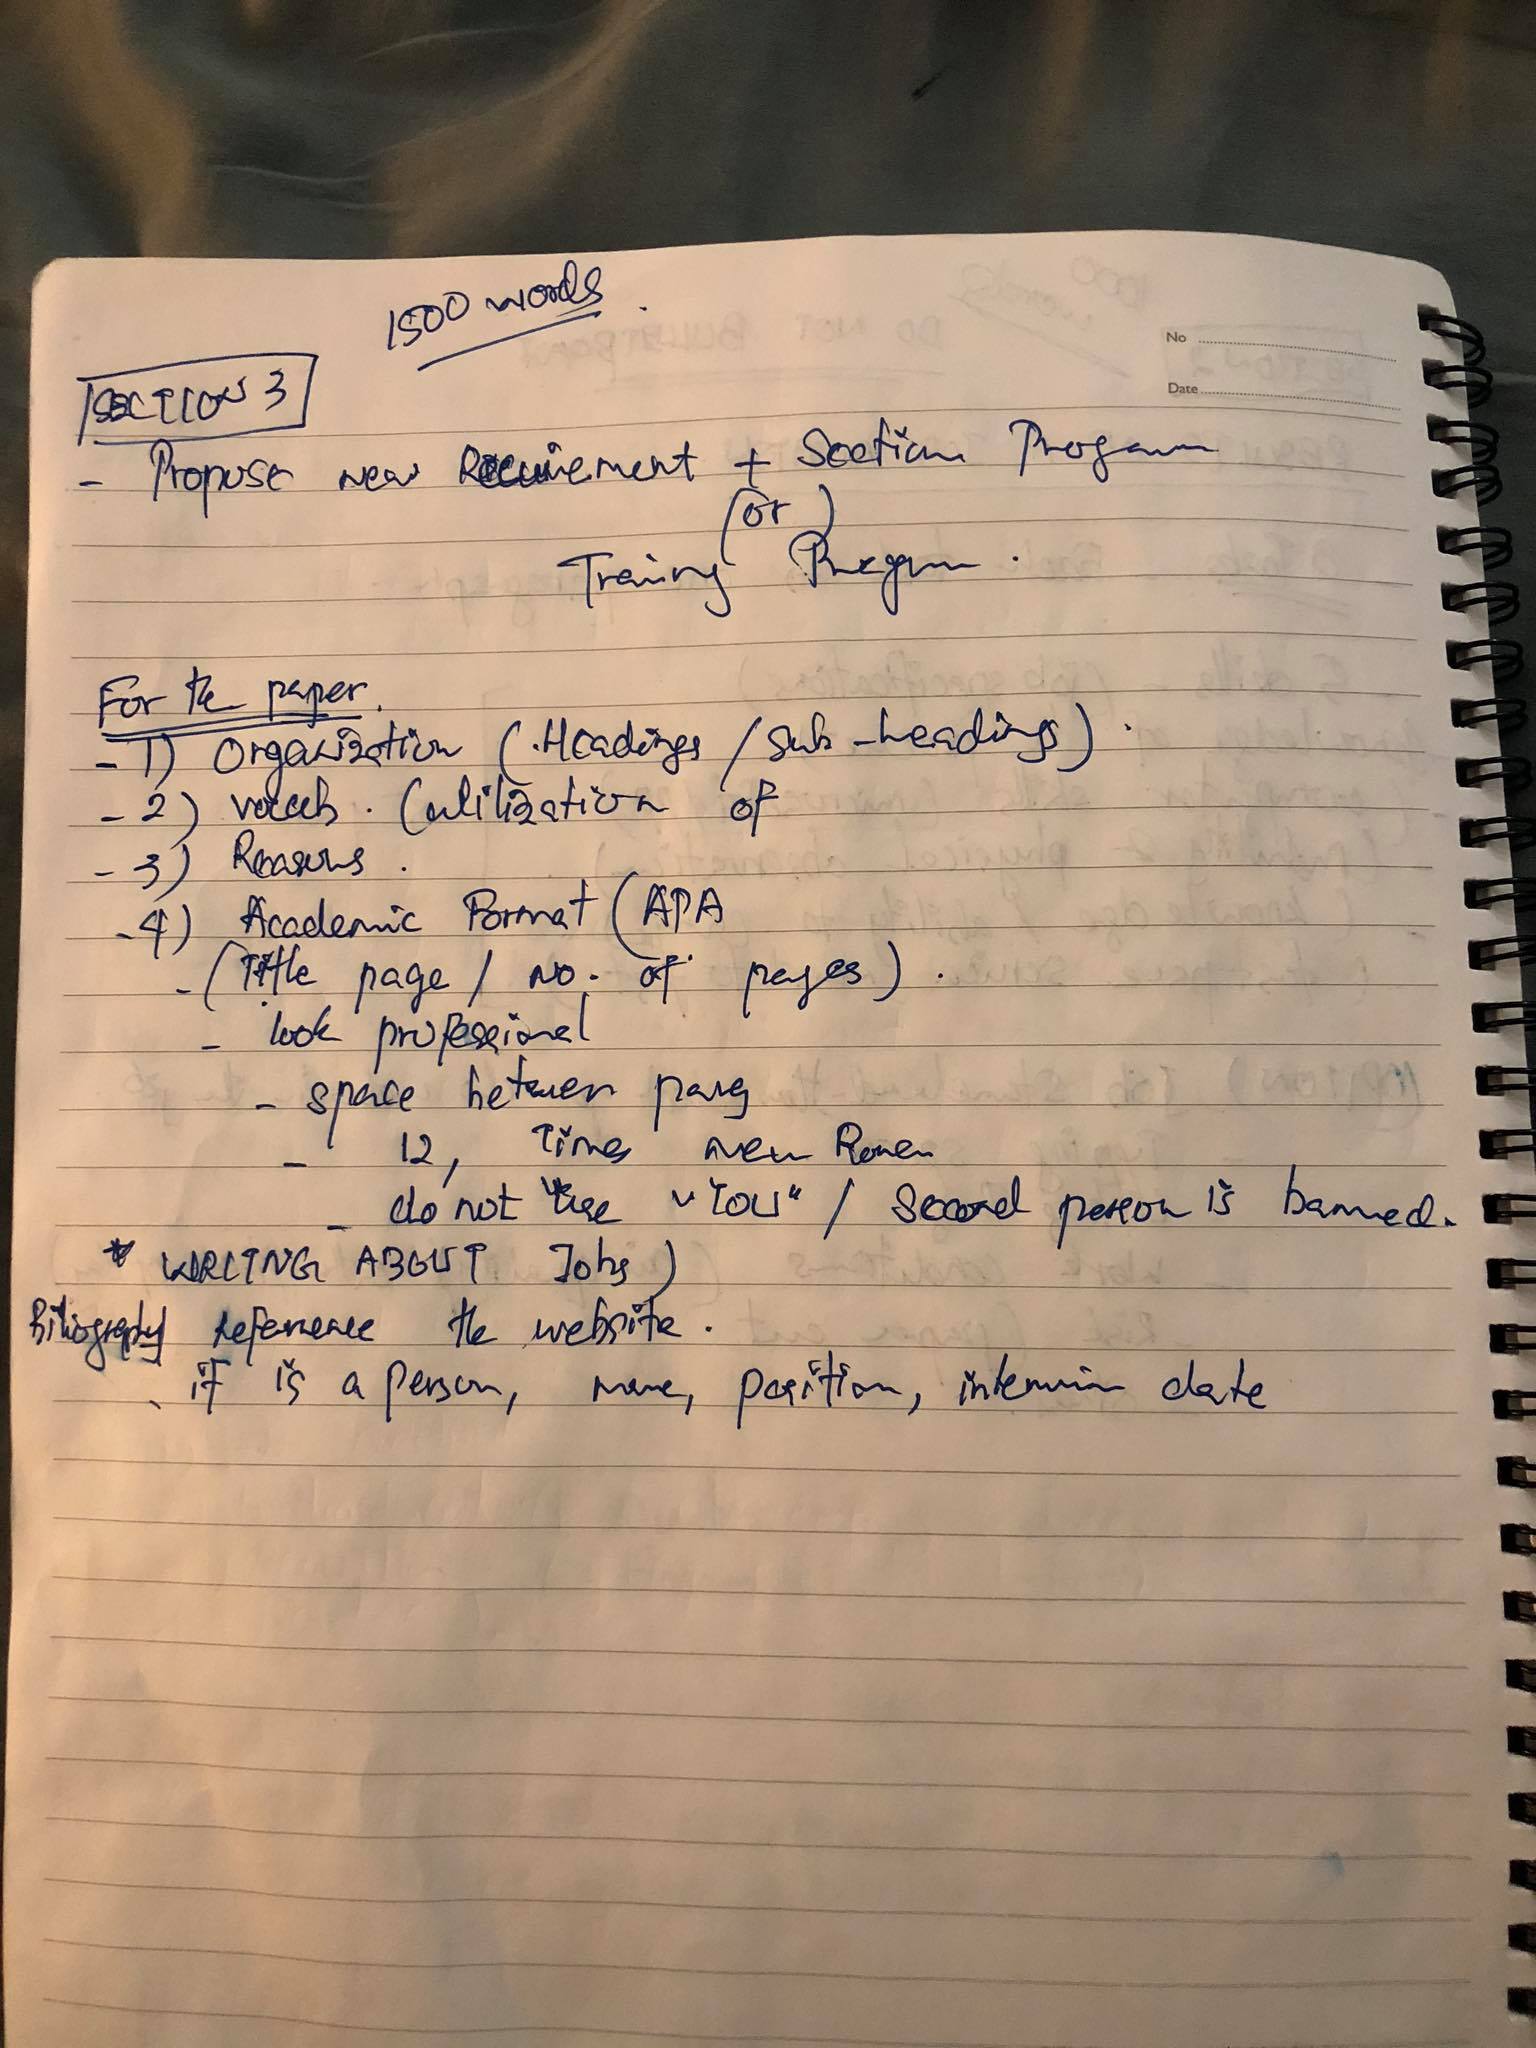 1500 words.
No
SECTION 3
Date
- Propose new Recuirement + Section Program
(or)
Training Program.
For the paper.
- 1) Organization (Headings / Sub-headings).
- 2) vocab. (utilization of
- 3) Reasons.
- 4) Academic Format (APA
- (Title page / no. of pages).
- look professional
- space between parag
- 12, Times new Roman
- do not use "YOU" / Second person is banned.
* WRITING ABOUT Jobs)
Bibliography reference the website.
- if it is a person, name, position, interview date